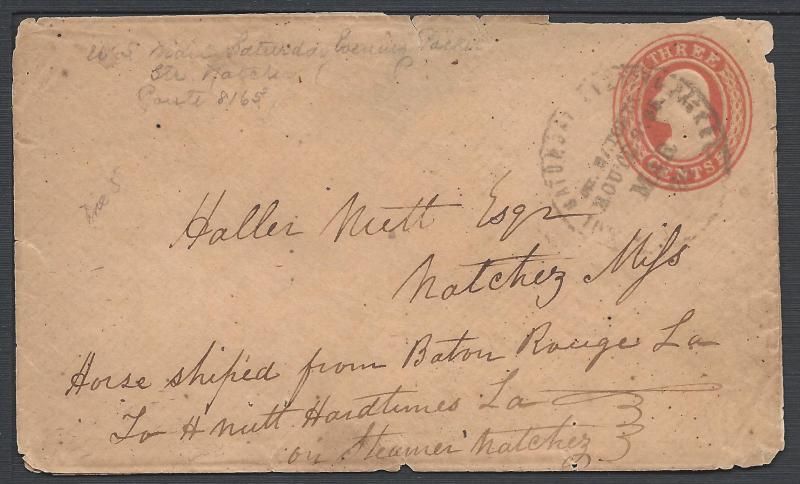 Saturday Evening Packet
Str Natchez
Route 8165
THREE
CENTS
Haller Nutt Esqr
Natchez Miss
Horse shiped from Baton Rouge La
To H Nutt Hardtimes La
on Steamer Natchez